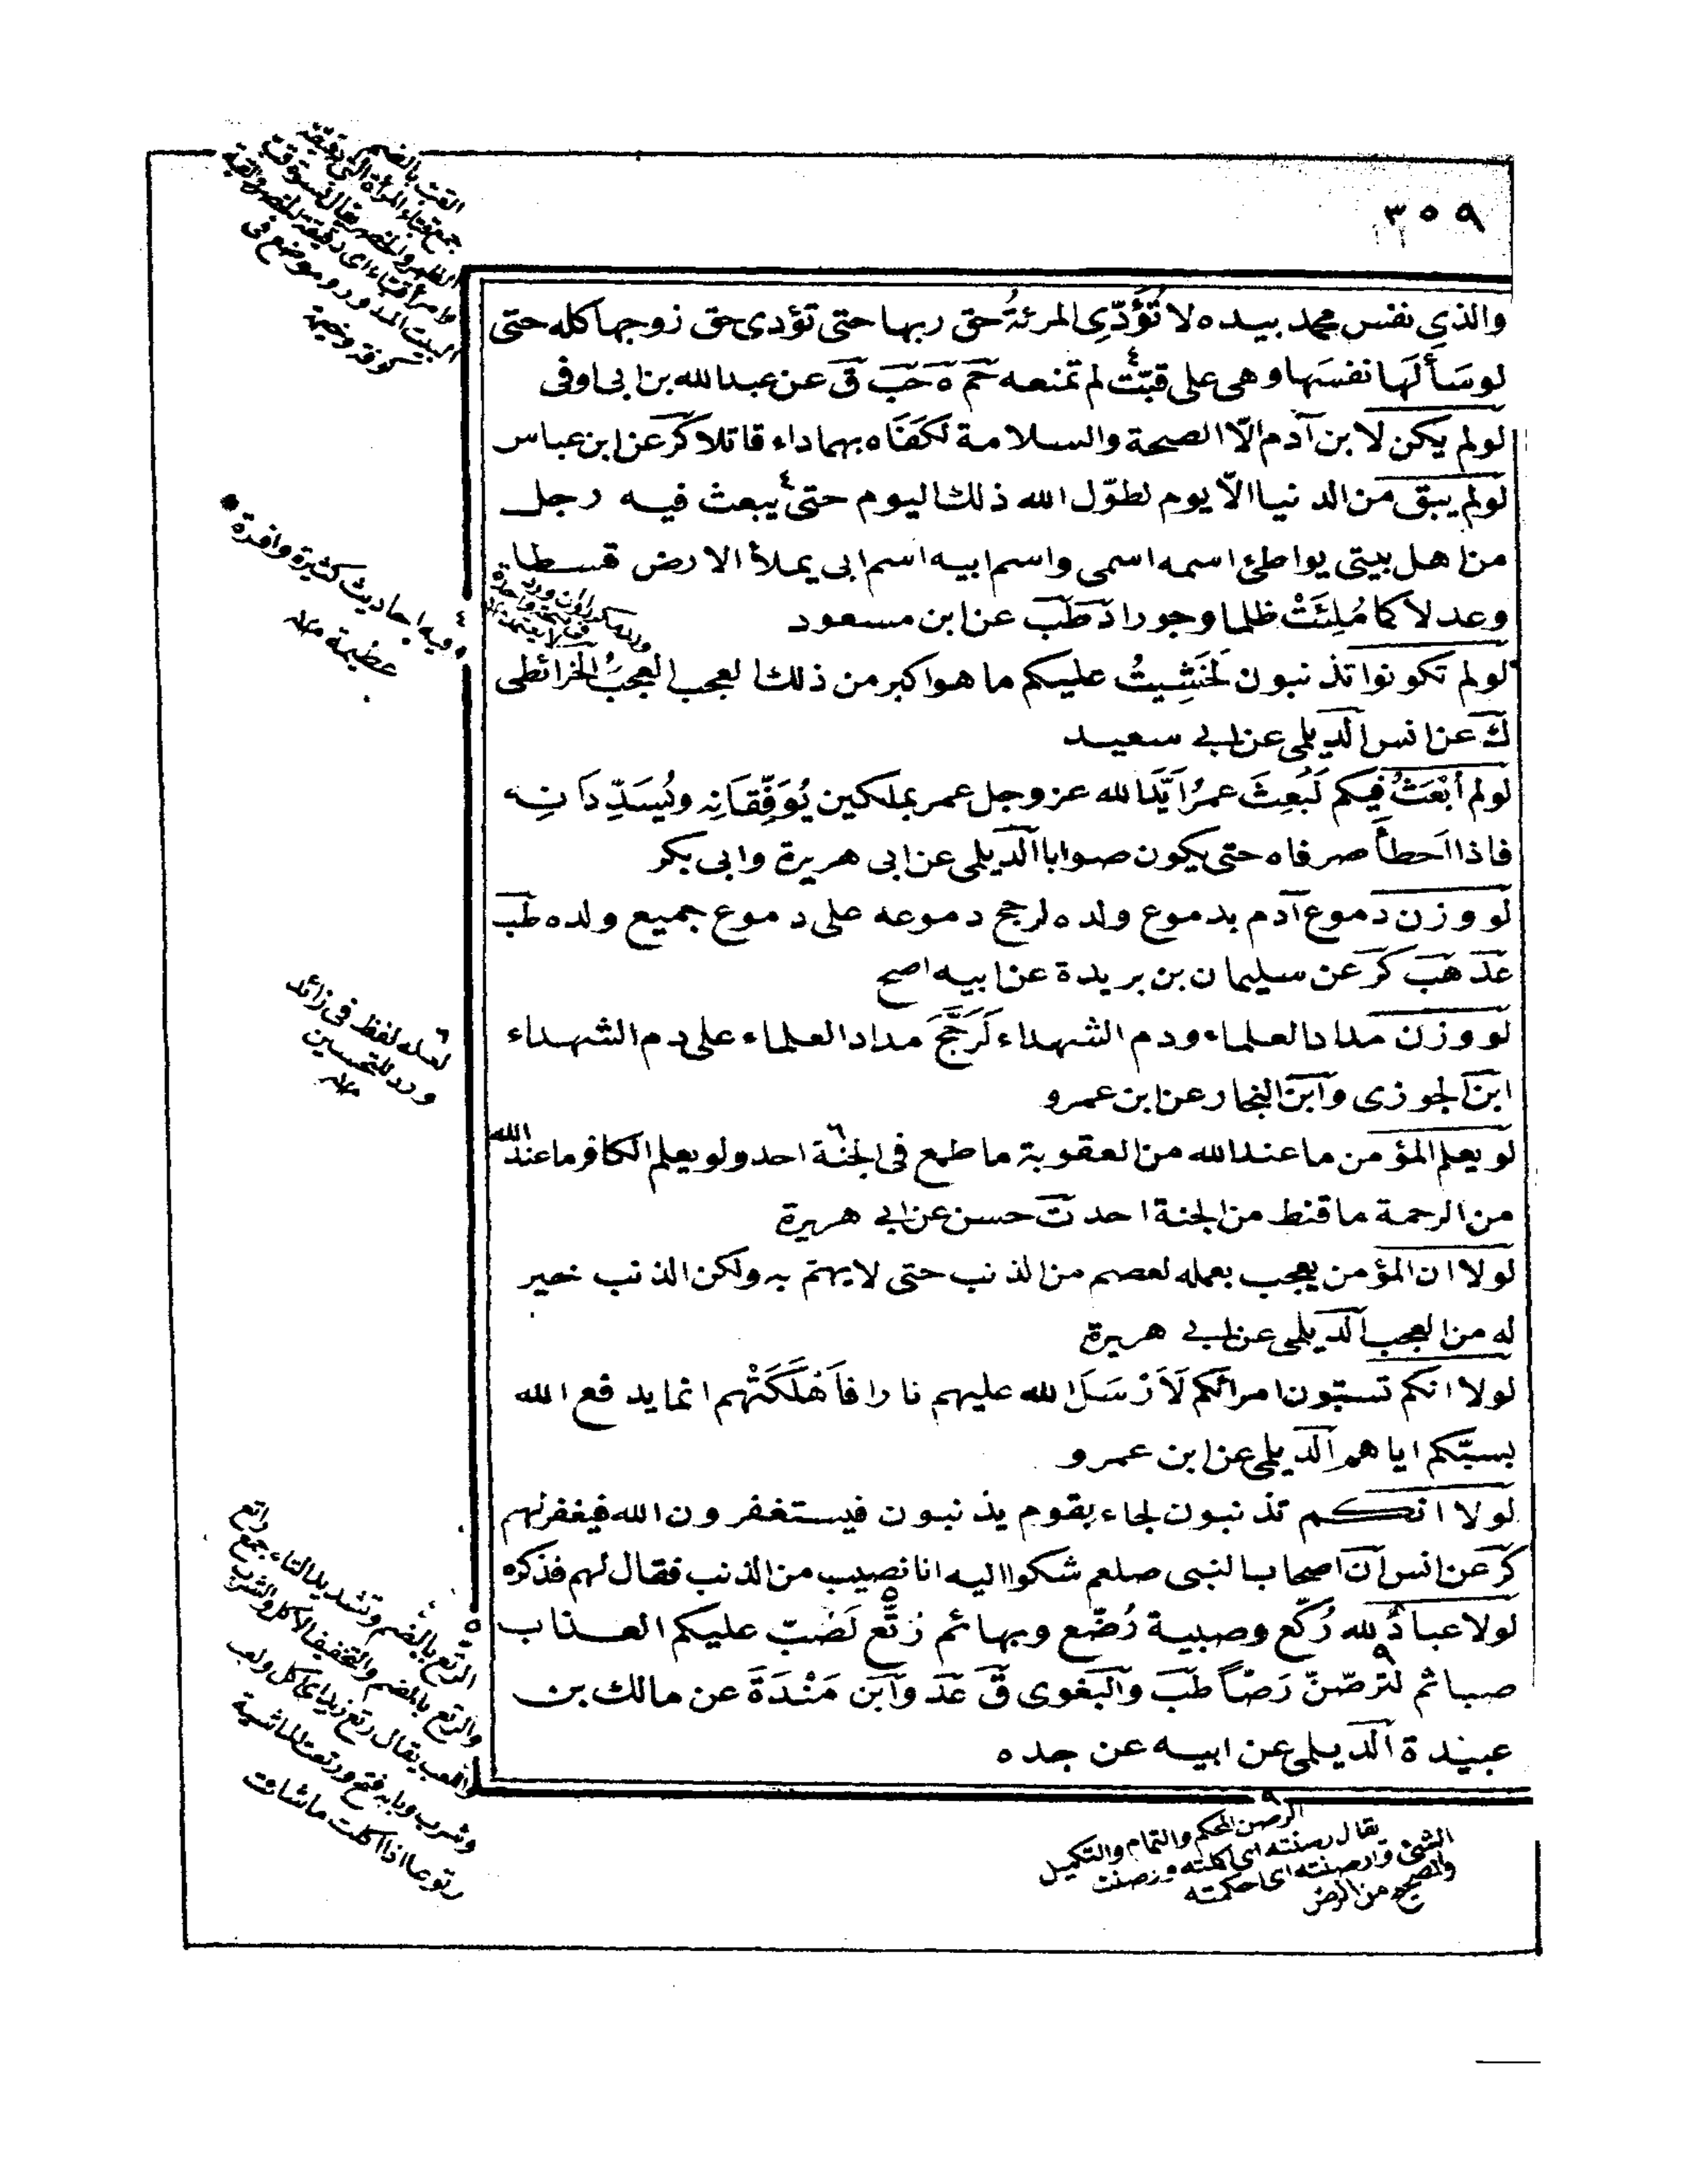 ٣٥٩
والذي نفس محمد بيده لا تُؤَدِّي المرئةُ حق ربها حتى تؤدى حق زوجها كله حتى
لو سَأَلَهَا نفسَها وهى على قتبٍ لم تمنعه حَم ه حَب ق عن عبدالله بن ابى اوفى
لو لم يكن لابن آدم الّا الصحة والسلامة لكفَنَاه بهما داء قاتلا كر عن ابن عباس
لو لم يبق من الدنيا الّا يوم لطوّل الله ذلك اليوم حتى يبعث فيه رجل
من اهل بيتى يواطئ اسمه اسمى واسم ابيه اسم ابى يملأ الارض قسطا
وعدلا كما مُلِئَتْ ظلما وجورا دَ طَب عن ابن مسعود
لو لم تكونوا تذنبون لَخَشِيتُ عليكم ما هو اكبر من ذلك العجب العجبُ الخرائطى
ك عن انس الديلمى عن ابى سعيد
لو لم اُبْعَثْ فيكم لَبُعِثَ عمرُ اَيَّدَ الله عز وجل عمر بملكين يُوَفِّقَانِه ويُسَدِّدَانِه
فاذا اَخطأَ صرفاه حتى يكون صوابا الديلمى عن ابى هريرة وابى بكر
لو وزن دموع آدم بدموع ولده لرجح دموعه على دموع جميع ولده طب
عد هب كر عن سليمان بن بريدة عن ابيه اصح
لو وزن مداد العلماء ودم الشهداء لَرَجَّحَ مداد العلماء على دم الشهداء
ابن الجوزى وابن النجار عن ابن عمرو
لو يعلم المؤمن ما عند الله من العقوبة ما طمع فى الجنة احد ولو يعلم الكافر ما عند الله
من الرحمة ما قنط من الجنة احد ت حسن عن ابى هريرة
لولا ان المؤمن يعجب بعمله لعصم من الذنب حتى لا يهتم به ولكن الذنب خير
له من العجب الديلمى عن ابى هريرة
لولا انكم تسبّون امرائكم لَاَرْسَلَ الله عليهم نارا فاَهْلَكَتْهم انما يدفع الله
بسبّكم اياهم الديلمى عن ابن عمرو
لولا انكم تذنبون لجاء بقوم يذنبون فيستغفرون الله فيغفر لهم
كر عن انس ان اصحاب النبى صلعم شكوا اليه انا نصيب من الذنب فقال لهم فذكره
لولا عبادٌ لله رُكّع وصبية رُضّع وبهائم رُتّع لَصُبّ عليكم العذاب
صبا ثم لترصّنّ رَصّاً طب والبغوى ق عد وابن مَنْدَةَ عن مالك بن
عبيدة الديلى عن ابيه عن جده
وفيه احاديث كثيرة وافرة
عظيمة منه
لعله لفظ فى زائد
ورد للتحسين
منه
الرتع بالضم وتشديد التاء جمع راتع
والرتع بالضم والتخفيف الاكل والشرب
واللعب يقال رتع زيد اى اكل ولعب
وشرب وبابه فتح ورتعت الماشية
رتوعا اذا اكلت ما شاءت
الرصن المحكم والتمام والتكميل
يقال رصنته اى اكملته ورصنت
الشئ وارصنته اى احكمته
والصحيح من الرض